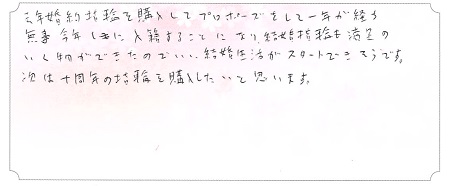 去年婚約指輪を購入してプロポーズをして一年が経ち
無事今年に入籍することになり結婚指輪も満足の
いく物ができたのでいい結婚生活がスタートできそうです。
次は十周年の指輪を購入したいと思います。